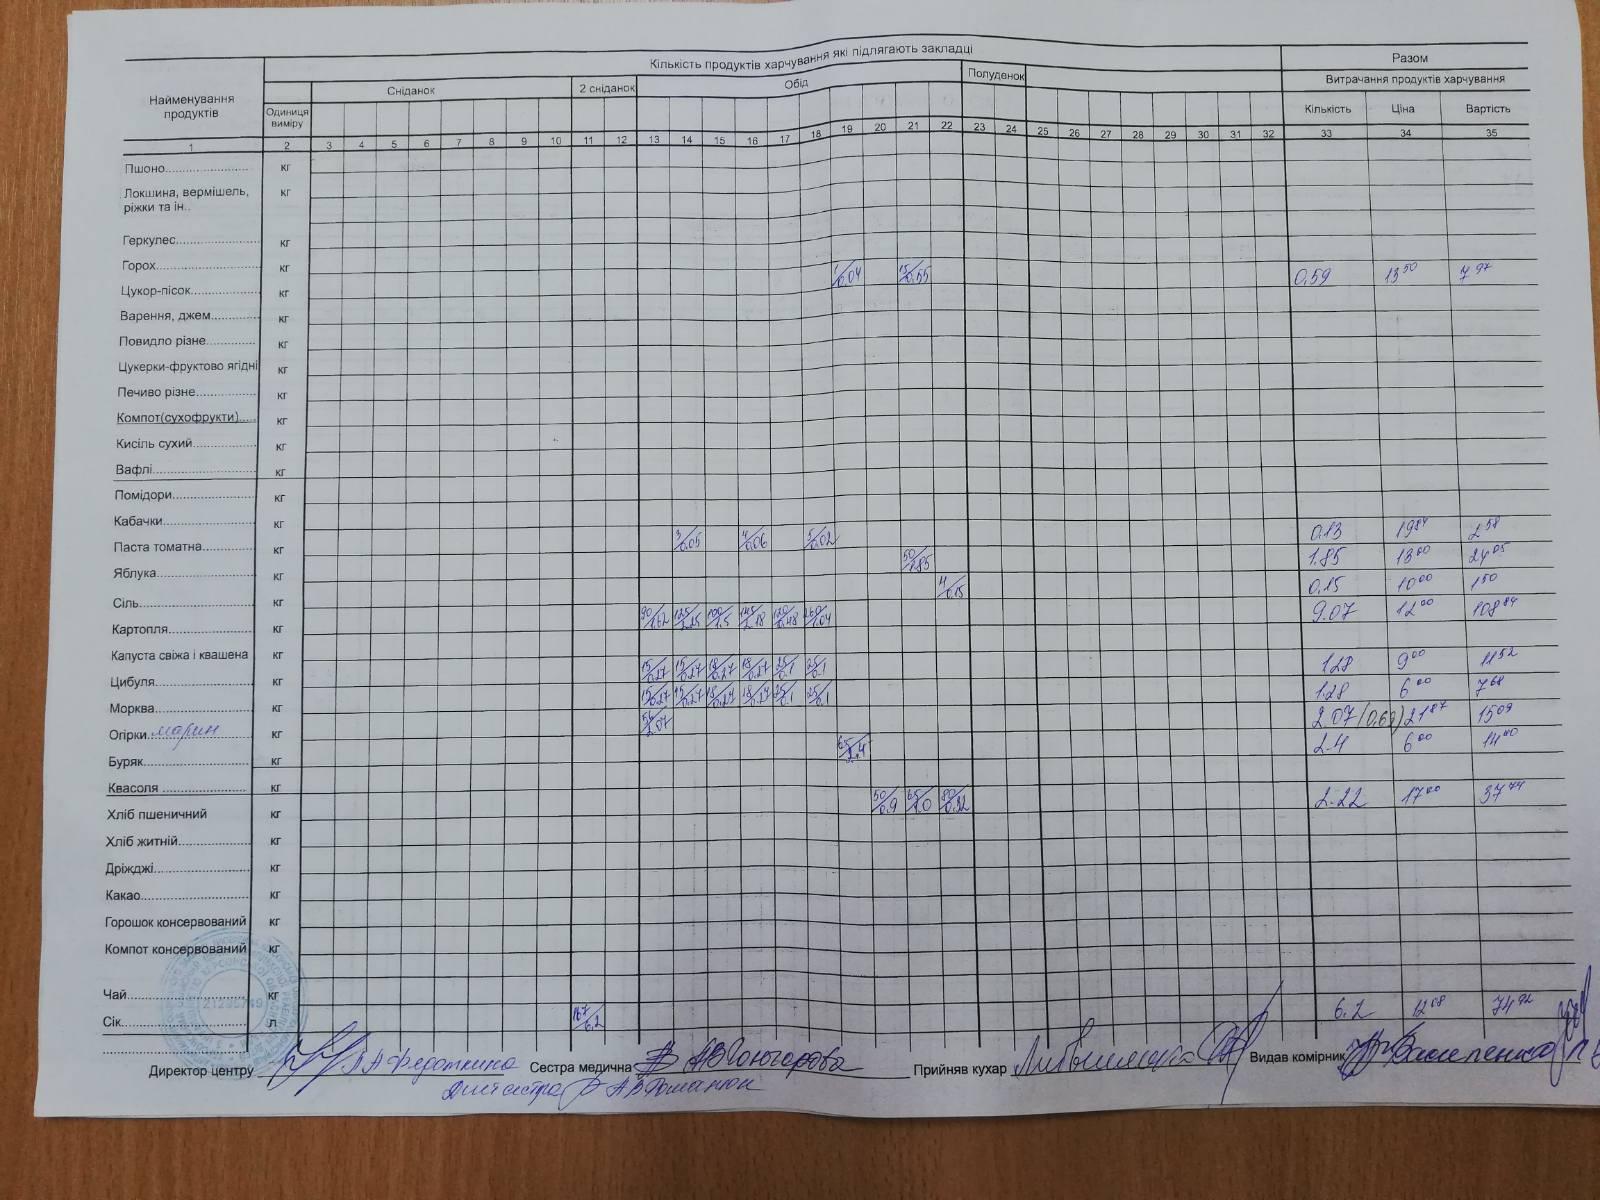 Кількість продуктів харчування які підлягають закладці Разом
Найменування продуктів Одиниця виміру Сніданок 2 сніданок Обід Полуденок Витрачання продуктів харчування
Кількість Ціна Вартість
1 2 3 4 5 6 7 8 9 10 11 12 13 14 15 16 17 18 19 20 21 22 23 24 25 26 27 28 29 30 31 32 33 34 35
Пшоно кг
Локшина, вермішель, кг
ріжки та ін..
Геркулес кг
Горох кг
Цукор-пісок кг 1/0,04 15/0,55 0,59 13 50 7 97
Варення, джем кг
Повидло різне кг
Цукерки-фруктово ягідні кг
Печиво різне кг
Компот(сухофрукти) кг
Кисіль сухий кг
Вафлі кг
Помідори кг
Кабачки кг
Паста томатна кг 3/0,05 4/0,06 5/0,02 0,13 19 84 2 58
Яблука кг 50/1,85 1.85 13 00 24 05
Сіль кг 4/0,15 0,15 10 00 1 50
Картопля кг 90/1,62 125/2,25 100/1,5 145/2,18 120/0,48 260/1,04 9.07 12 00 108 84
Капуста свіжа і квашена кг
Цибуля кг 15/0,27 15/0,27 18/0,27 18/0,27 25/0,1 25/0,1 1.28 9 00 11 52
Морква кг 15/0,27 15/0,27 18/0,27 18/0,27 25/0,1 25/0,1 1.28 6 00 7 68
Огірки марин кг 2,07 2.07 (0,69) 21 87 15 09
Буряк кг 65/2.4 2.4 6 00 14 40
Квасоля кг
Хліб пшеничний кг 50/0,9 65/1.0 80/0.32 2.22 17 00 37 74
Хліб житній кг
Дріжджі кг
Какао кг
Горошок консервований кг
Компот консервований кг
Чай кг
Сік л 167/6,2 6.2 12 08 74 92
21295749
Директор центру Л А Федоткина Сестра медична Прийняв кухар Видав комірник
Дієтсестра А В Романюк